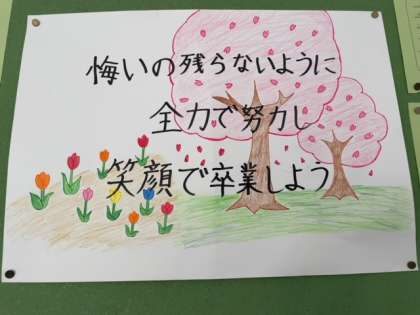 悔いの残らないように
全力で努力し
笑顔で卒業しよう